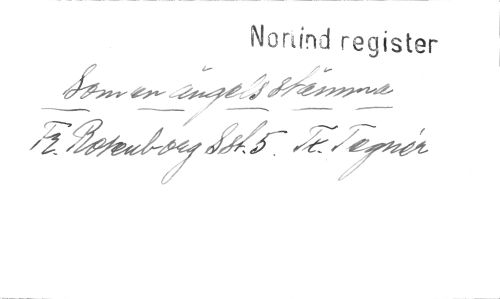 Norlind register
Som en ängels stämma
Fr. Rosenborg Sst. 5. Tr. Tegnér